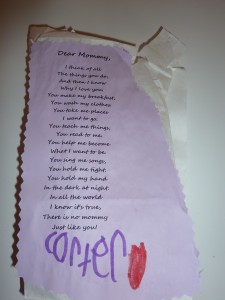 Dear Mommy,
I think of all
The things you do,
And then I know
Why I love you.
You make my breakfast,
You wash my clothes
You take me places
I want to go.
You teach me things,
You read to me.
You help me become
What I want to be.
You sing me songs,
You hold me tight.
You hold my hand
In the dark at night.
In all the world
I know it's true,
There is no mommy
Just like you!
Carter